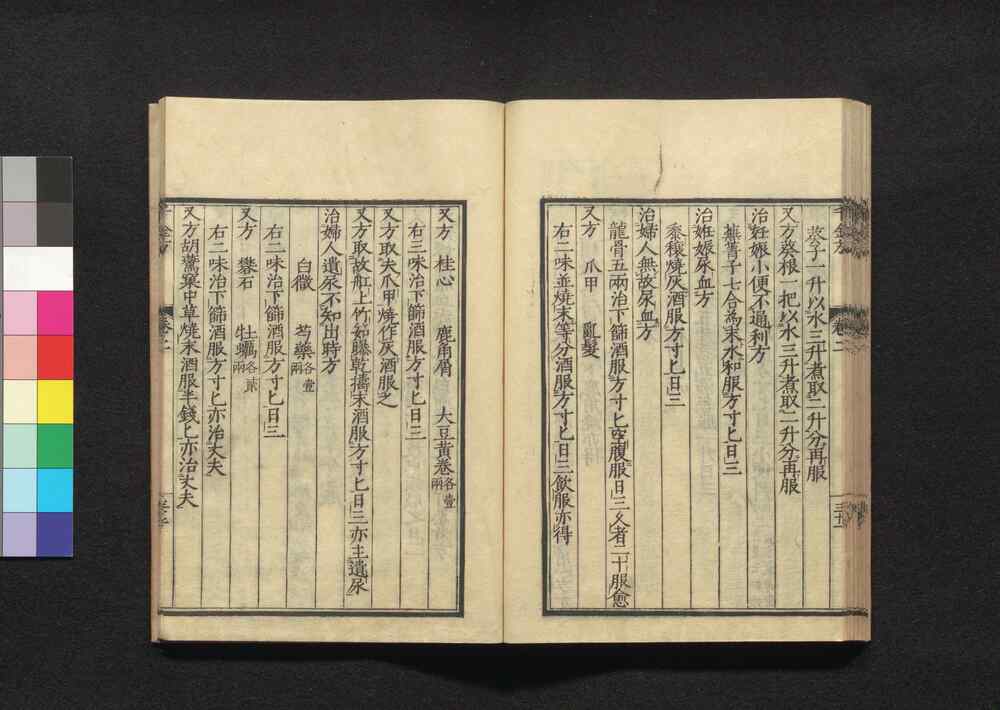 葵子一升以水三升煮取二升分再服
又方葵根一把以水三升煮取二升分再服
治妊娠小便不通利方
蕪菁子七合為末水和服方寸匕日三
治妊娠尿血方
黍穰燒灰酒服方寸匕日三
治婦人無故尿血方
龍骨五兩治下篩酒服方寸匕空腹服日三久者二十服愈
又方 爪甲 亂髮
右二味並燒末等分酒服方寸匕日三飲服亦得
千金方
卷二
又方 桂心 鹿角屑 大豆黃卷各壹兩
右三味治下篩酒服方寸匕日三
又方取夫爪甲燒作灰酒服之
又方取故舡上竹茹曝乾擣末酒服方寸匕日三亦主遺尿
治婦人遺尿不知出時方
白薇 芍藥各壹兩
右二味治下篩酒服方寸匕日三
又方 礬石 牡蠣各貳兩
右二味治下篩酒服方寸匕亦治丈夫
又方胡鷰窠中草燒末酒服半錢匕亦治丈夫